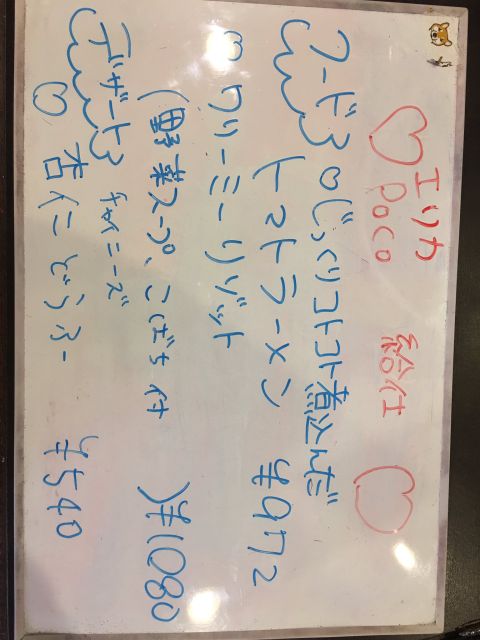 エリカ
♡ Poco 給仕 ♡
フード ♡じっくりコトコト煮込んだ
トマトラーメン ¥972
♡クリーミーリゾット
(野菜スープ、こばち付) ¥1080
デザート チャイニーズ
♡ 杏仁どうふー ¥540